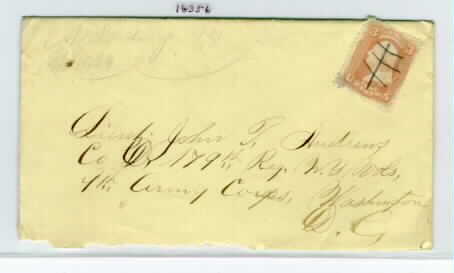 18356
3 3
U 3
Lieut. John T. Andrews
Co D, 179th Reg. N.Y. Vols,
9th Army Corps, Washington
D. C.